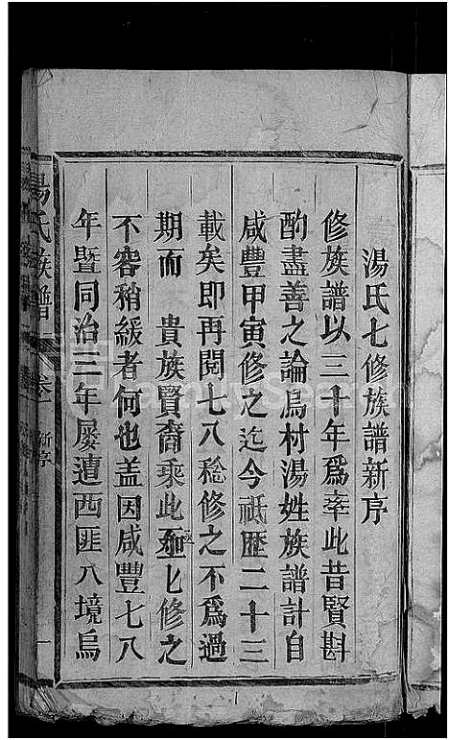 湯氏七修族譜新序
修族譜以三十年爲率此昔賢斟
酌盡善之論烏村湯姓族譜計自
咸豐甲寅修之迄今祗歷二十三
載矣即再閱七八稔修之不爲過
期而　貴族賢裔乘此而七修之
不容稍緩者何也盖因咸豐七八
年暨同治三年屡遭西匪入境烏
湯氏族譜
卷一
新序
一